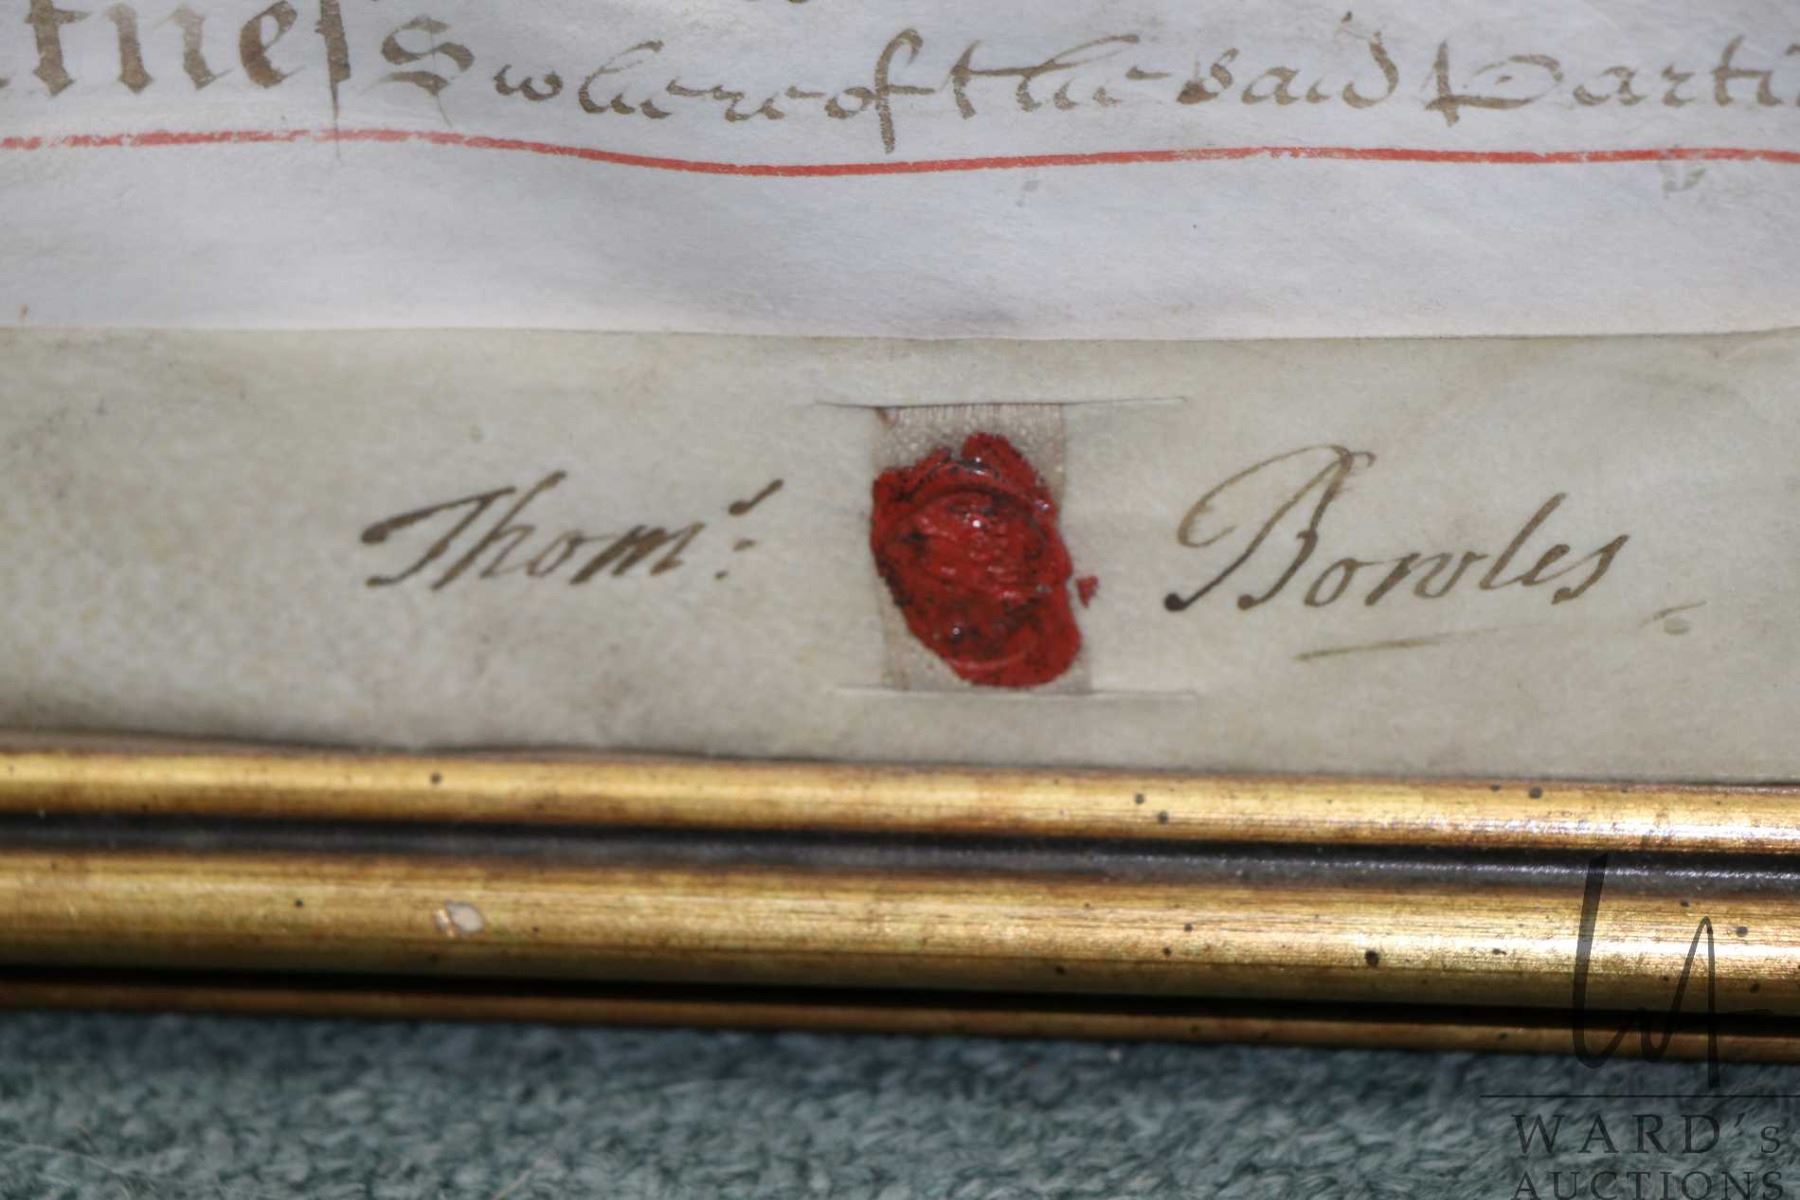 tness whereof the said Parti
Thom.s Bowles
WARD's
AUCTIONS